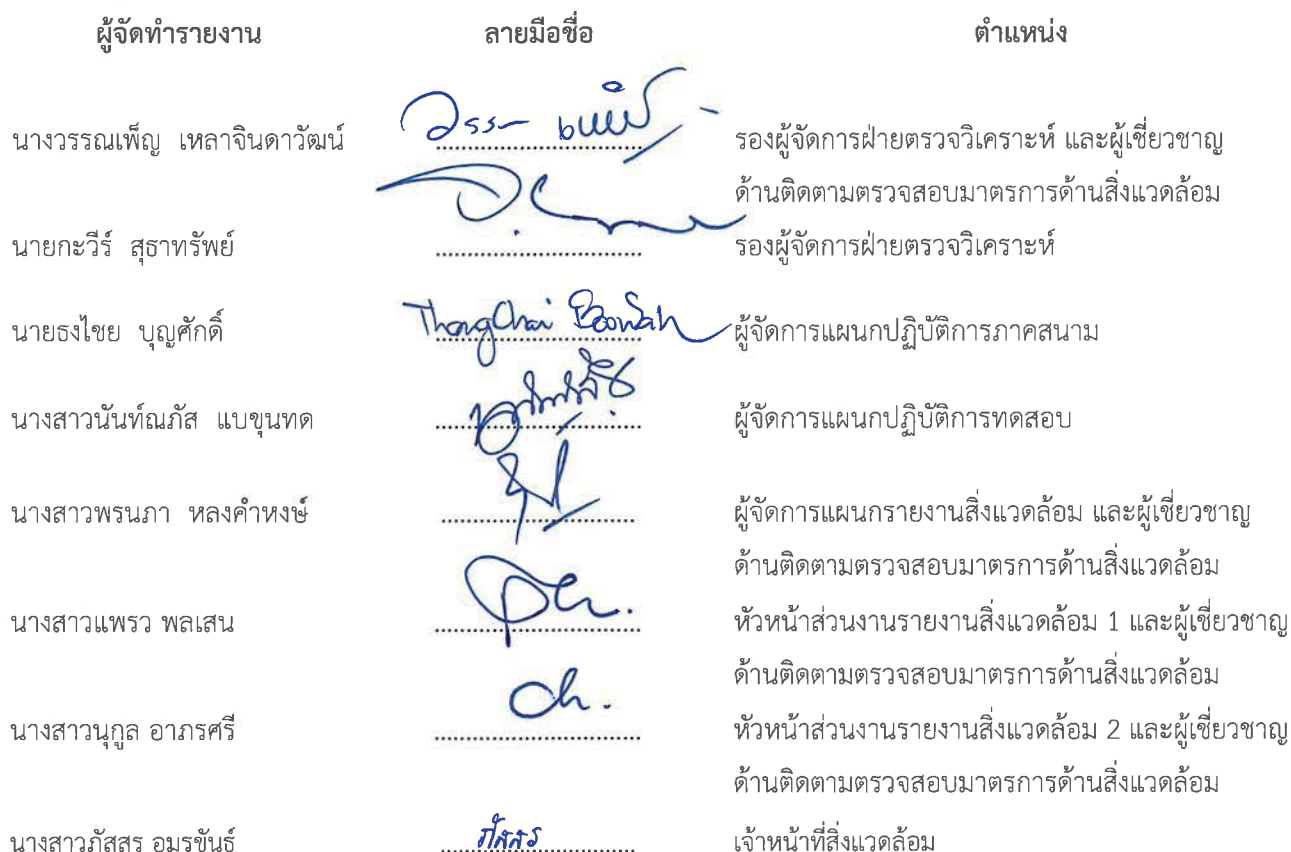 ผู้จัดทำรายงาน ลายมือชื่อ ตำแหน่ง
นางวรรณเพ็ญ เหลาจินดาวัฒน์ รองผู้จัดการฝ่ายตรวจวิเคราะห์ และผู้เชี่ยวชาญ
ด้านติดตามตรวจสอบมาตรการด้านสิ่งแวดล้อม
นายกะวีร์ สุธาทรัพย์ รองผู้จัดการฝ่ายตรวจวิเคราะห์
นายธงไชย บุญศักดิ์ ThongChai ผู้จัดการแผนกปฏิบัติการภาคสนาม
นางสาวนันท์ณภัส แบขุนทด ผู้จัดการแผนกปฏิบัติการทดสอบ
นางสาวพรนภา หลงคำหงษ์ ผู้จัดการแผนกรายงานสิ่งแวดล้อม และผู้เชี่ยวชาญ
ด้านติดตามตรวจสอบมาตรการด้านสิ่งแวดล้อม
นางสาวแพรว พลเสน หัวหน้าส่วนงานรายงานสิ่งแวดล้อม 1 และผู้เชี่ยวชาญ
ด้านติดตามตรวจสอบมาตรการด้านสิ่งแวดล้อม
นางสาวนุกูล อาภรศรี หัวหน้าส่วนงานรายงานสิ่งแวดล้อม 2 และผู้เชี่ยวชาญ
ด้านติดตามตรวจสอบมาตรการด้านสิ่งแวดล้อม
นางสาวภัสสร อมรขันธ์ ภัสสร เจ้าหน้าที่สิ่งแวดล้อม